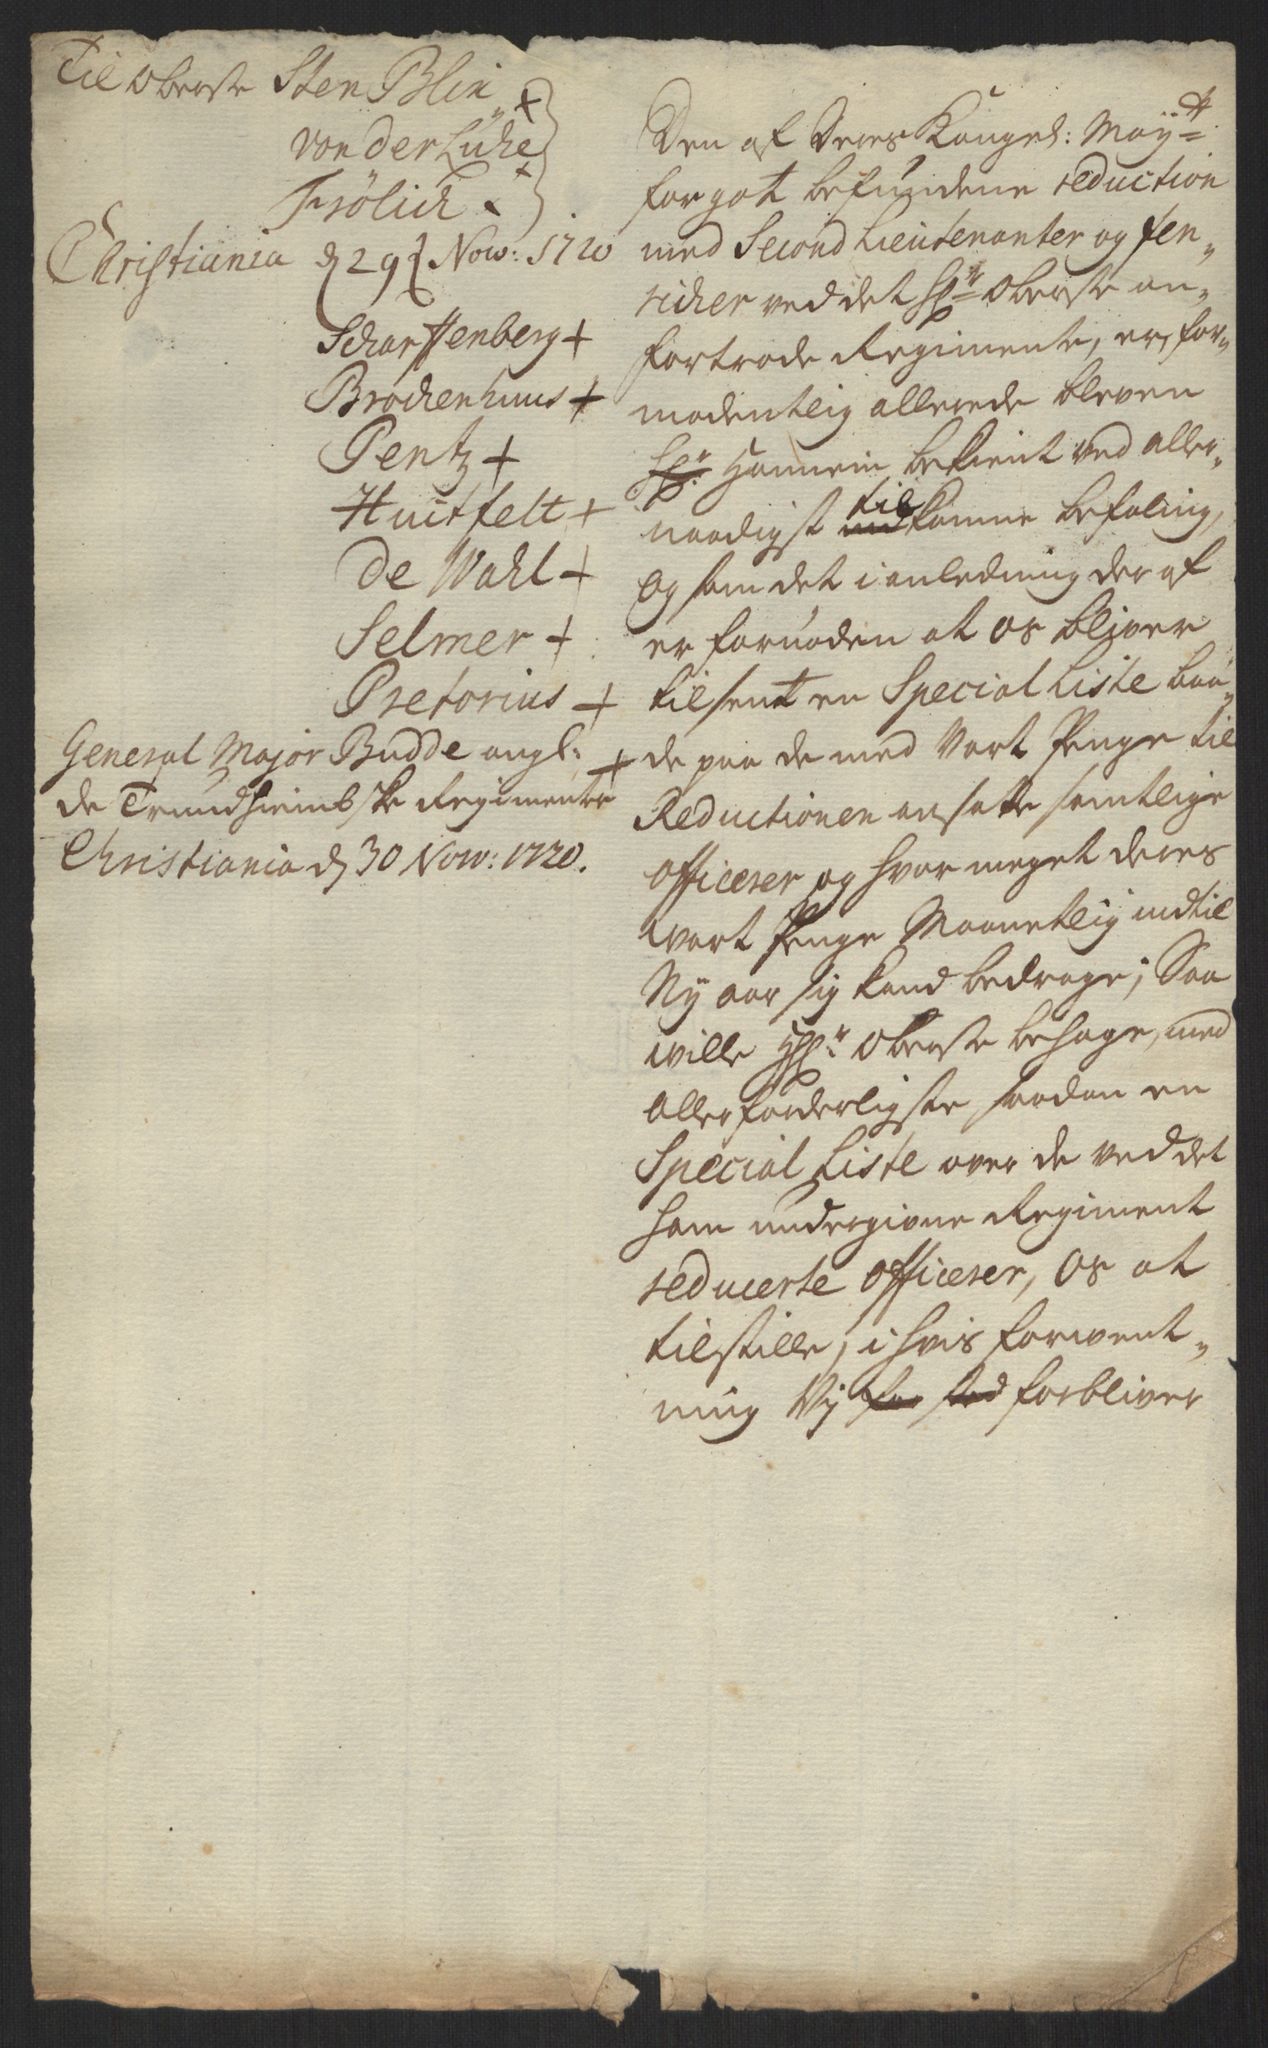 Til Oberste Sten Blix +
von der Lühe +
Frölich +
Christiania d 29 Nov: 1720
Scharffenberg +
Brochenhuus +
Pentz +
Huitfelt +
De Wahl +
Selmer +
Pretorius +
General Major Budde angl: +
de Trundhiembske Regimenter
Christiania d 30 Nov: 1720.
Den af Deres Kongel: Mayt
for got befundene reduction
med Second Lieutenanter og fen-
richer ved det Hr Oberste an-
fortroede Regimente, er, for-
modentlig allerede bleven
Hr Hannem bekient ved aller-
naadigst til komne befaling,
og som det i anledning der af
er fornøden at os bliver
tilsent en Special Liste baa-
de paa de med Vart Penge til
Reductionen ansatte samtlige
officerer og hvor meget deres
wart Penge Maanetlig indtil
Ny aar sig kand bedrage; Saa
wille Hr Oberste behage, med
allerforderligste saadan en
Special Liste over de ved det
ham undergivne Regiment
reducerte officerer, os at
tilstille, i hvis forvent-
ning Vij for stod forbliver